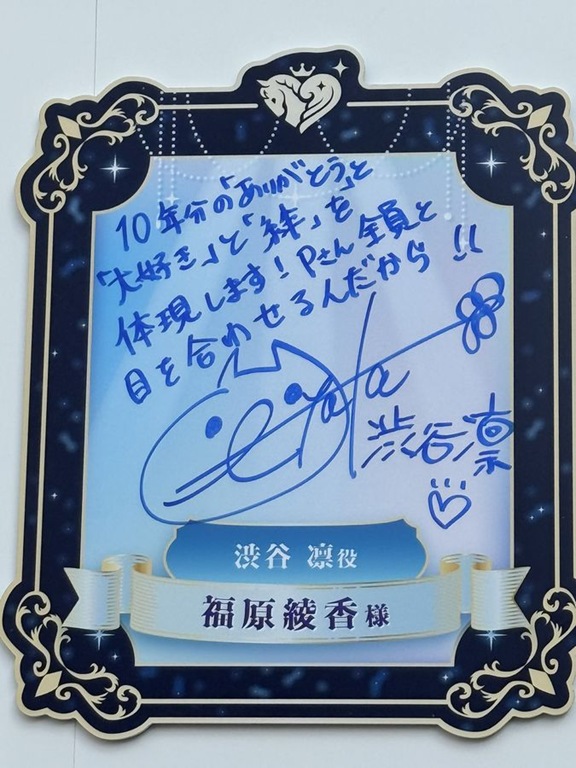 10年分の「ありがとう」と
「大好き」と「絆」を
体現します！Pさん全員と
目を合わせるんだから!!
Ayaka
渋谷凛
渋谷 凛役
福原綾香様